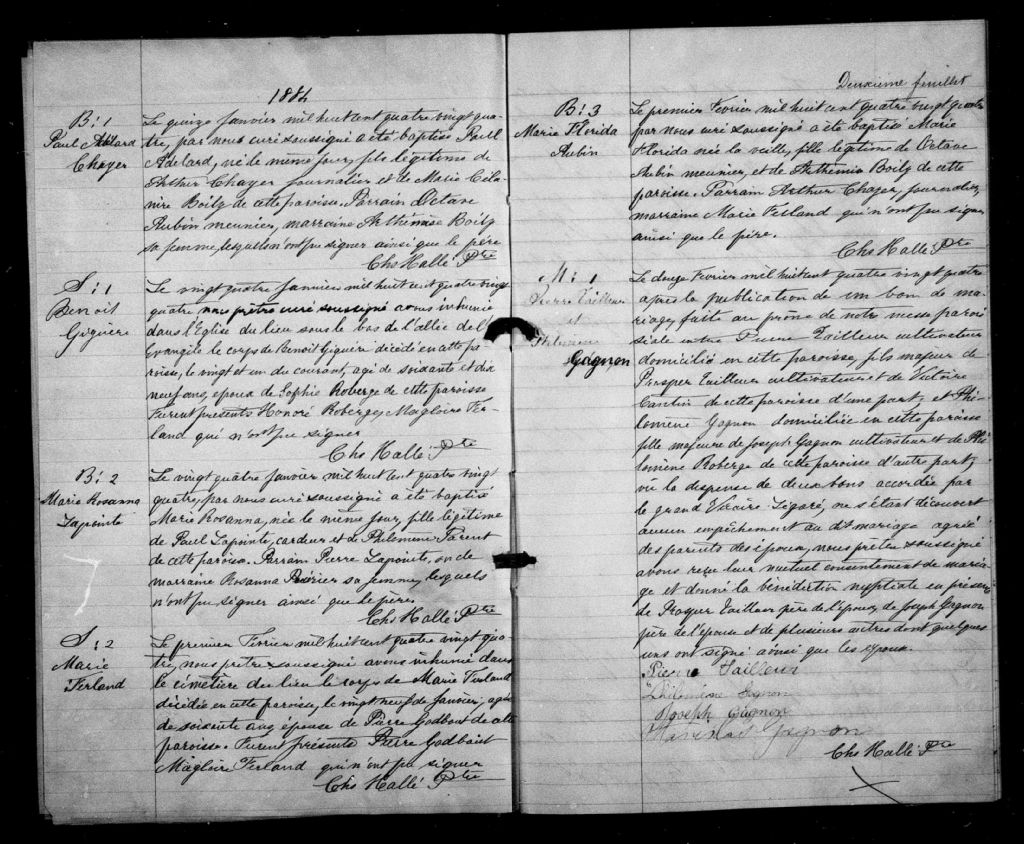 1884
B: 1
Paul Adélard
Chayer
Le quinze Janvier mil huit cent quatre vingt qua-
tre, par nous curé soussigné a été baptisé Paul
Adelard, né le même jour, fils légitime de
Arthur Chayer journalier et de Marie Céla-
nire Boily de cette paroisse. Parrain Octave
Aubin meunier, marraine Arthémise Boily
sa femme, lesquels n'ont pu signer ainsi que le père
Chs Hallé Ptre
S: 1
Benoit
Giguère
Le vingt quatre Janvier mil huit cent quatre vingt
quatre nous prêtre curé soussigné avons inhumé
dans l'Eglise du lieu sous le bas de l'allée de l'
Evangile le corps de Benoit Giguère décédé en cette pa-
roisse, le vingt et un du courant, agé de soixante et dix
neuf ans, époux de Sophie Roberge de cette paroisse
Furent présents Honoré Roberge, Magloire Fer-
land qui n'ont pu signer
Chs Hallé Ptre
B: 2
Marie Rosanna
Lapointe
Le vingt quatre Janvier mil huit cent quatre vingt
quatre, par nous curé soussigné a été baptisé
Marie Rosanna, née le même jour, fille légitime
de Paul Lapointe, cardeur et de Philomène Parent
de cette paroisse. Parrain Pierre Lapointe, oncle
marraine Rosanna sa femme, lesquels
n'ont pu signer ainsi que le père
Chs Hallé Ptre
S: 2
Marie
Ferland
Le premier Février mil huit cent quatre vingt qua-
tre, nous prêtre soussigné avons inhumé dans
le cimetière du lieu le corps de Marie Ferland
décédée en cette paroisse, le vingt neuf de Janvier, agée
de soixante ans, épouse de Pierre Godbout de cette
paroisse. Furent présents Pierre Godbout
Magloire Ferland qui n'ont pu signer
Chs Hallé Ptre
Deuxième feuillet
B: 3
Marie Florida
Aubin
Le premier Février mil huit cent quatre vingt quatre
par nous curé soussigné a été baptisé Marie
Florida née la veille, fille légitime de Octave
Aubin meunier, et de Arthémise Boily de cette
paroisse. Parrain Arthur Chayer, journalier,
marraine Marie Ferland qui n'ont pu signer
ainsi que le père.
Chs Hallé Ptre
M: 1
Pierre Tailleur
et
Philomène
Gagnon
Le douze Février mil huit cent quatre vingt quatre
après la publication de un ban de ma-
riage, faite au prône de notre messe parois-
siale entre Pierre Tailleur cultivateur
domicilié en cette paroisse, fils majeur de
Prosper Tailleur cultivateur et de Victoire
Cantin de cette paroisse d'une part, et Phi-
lomène Gagnon domiciliée en cette paroisse
fille majeure de Joseph Gagnon cultivateur et de Phi-
lomène Roberge de cette paroisse d'autre part,
vû la dispense de deux bans accordée par
le grand Vicaire Légaré, ne s'étant découvert
aucun empêchement au dit mariage agréé
des parents des époux, nous prêtre soussigné
avons reçu leur mutuel consentement de maria-
ge et donné la bénédiction nuptiale en présence
de Prosper Tailleur père de l'époux, de Joseph Gagnon
père de l'épouse et de plusieurs autres dont quelques
uns ont signé ainsi que les époux.
Pierre Tailleur
Philomène Gagnon
Joseph Gagnon
Gagnon
Chs Hallé Ptre